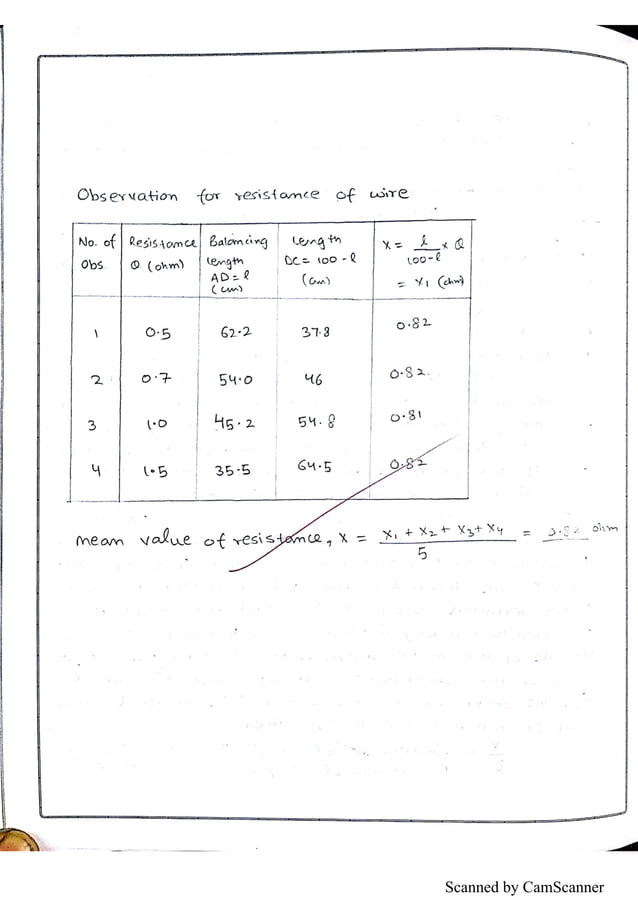 Observation for resistance of wire
No. of Obs. | Resistance Q (ohm) | Balancing length AD = l (cm) | Length DC = 100 - l (cm) | X = l/100-l × Q = X₁ (ohm)
1 | 0.5 | 62.2 | 37.8 | 0.82
2 | 0.7 | 54.0 | 46 | 0.82
3 | 1.0 | 45.2 | 54.8 | 0.81
4 | 1.5 | 35.5 | 64.5 | 0.82
mean value of resistance, X = X₁ + X₂ + X₃ + X₄ / 5 = 0.82 ohm
Scanned by CamScanner